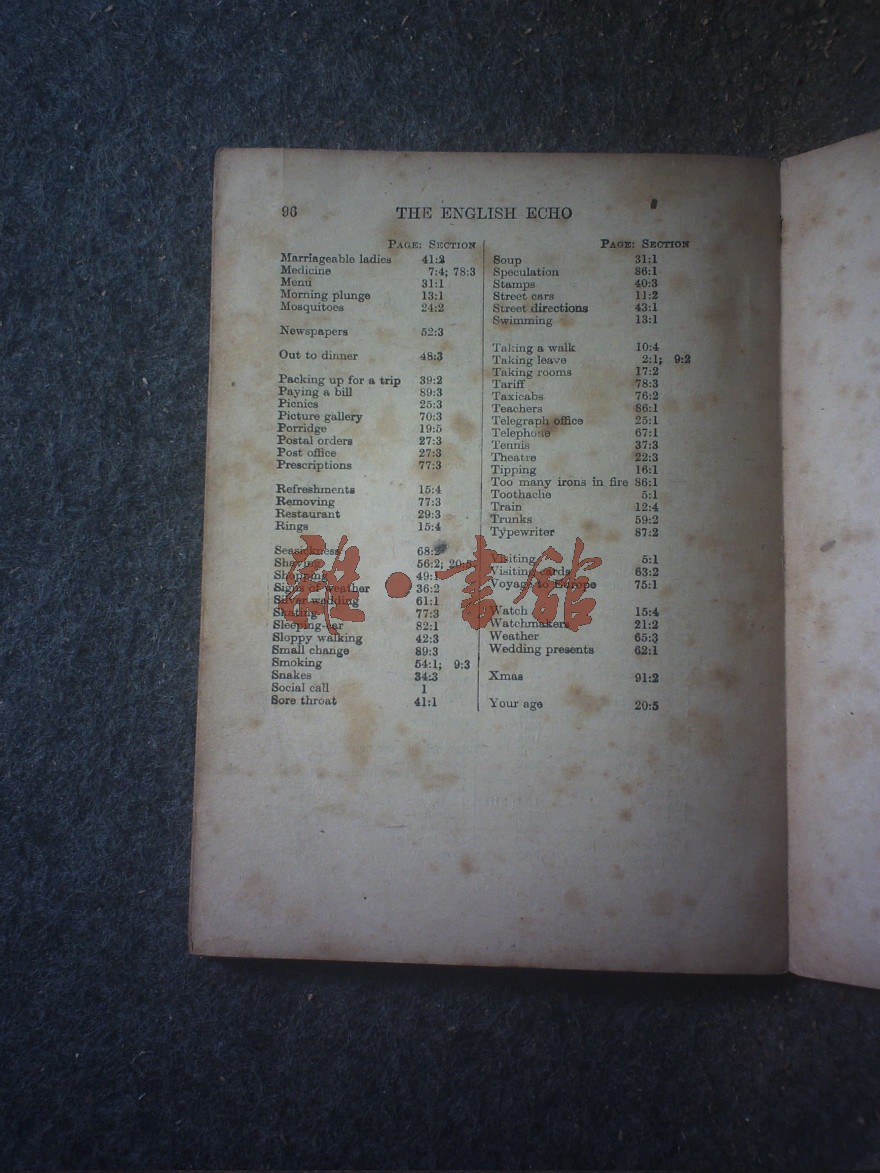 96 THE ENGLISH ECHO
PAGE: SECTION
Marriageable ladies 41:2
Medicine 7:4; 78:3
Menu 31:1
Morning plunge 13:1
Mosquitoes 24:2
Newspapers 52:3
Out to dinner 48:3
Packing up for a trip 39:2
Paying a bill 89:3
Picnics 25:3
Picture gallery 70:3
Porridge 19:5
Postal orders 27:3
Post office 27:3
Prescriptions 77:3
Refreshments 15:4
Removing 77:3
Restaurant 29:3
Rings 15:4
Seasickness 68:2
Shaving 56:2; 20:5
Shopping 49:1
Signs of weather 36:2
Silver wedding 61:1
Skating 77:3
Sleeping-car 82:1
Sloppy walking 42:3
Small change 89:3
Smoking 54:1; 9:3
Snakes 34:3
Social call 1
Sore throat 41:1
PAGE: SECTION
Soup 31:1
Speculation 86:1
Stamps 40:3
Street cars 11:2
Street directions 43:1
Swimming 13:1
Taking a walk 10:4
Taking leave 2:1; 9:2
Taking rooms 17:2
Tariff 78:3
Taxicabs 76:2
Teachers 86:1
Telegraph office 25:1
Telephone 67:1
Tennis 37:3
Theatre 22:3
Tipping 16:1
Too many irons in fire 86:1
Toothache 5:1
Train 12:4
Trunks 59:2
Typewriter 87:2
Visiting 5:1
Visiting cards 63:2
Voyage to Europe 75:1
Watch 15:4
Watchmakers 21:2
Weather 65:3
Wedding presents 62:1
Xmas 91:2
Your age 20:5